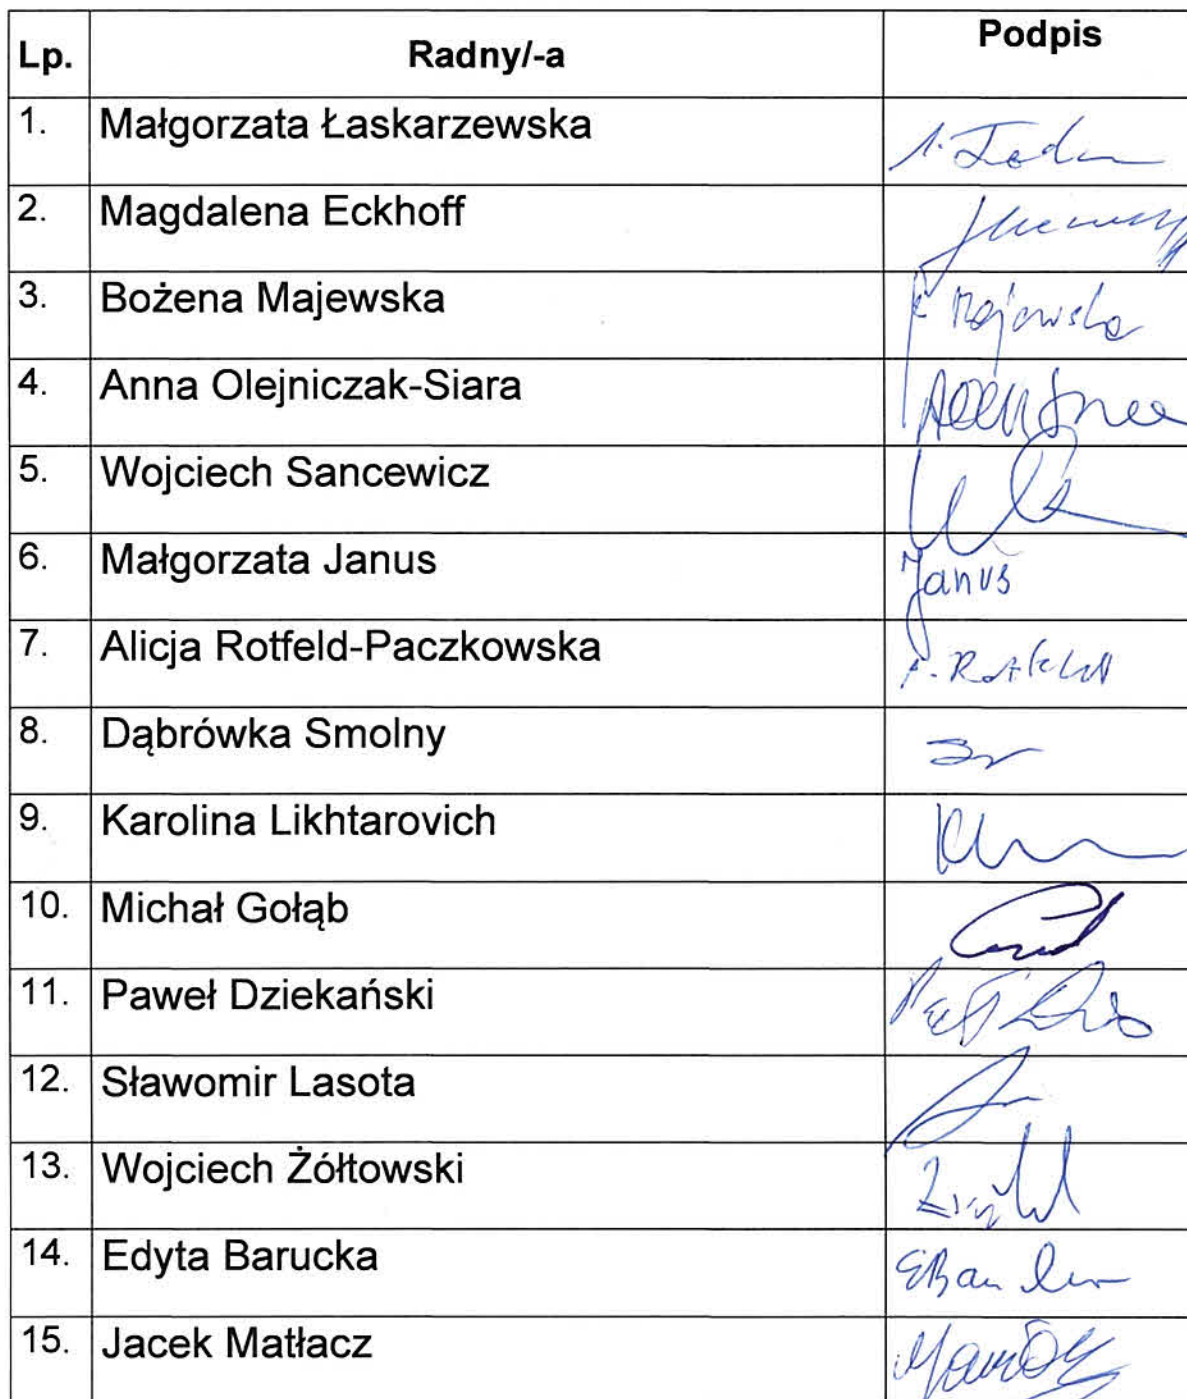 Lp. Radny/-a Podpis
1. Małgorzata Łaskarzewska
2. Magdalena Eckhoff
3. Bożena Majewska Majewska
4. Anna Olejniczak-Siara
5. Wojciech Sancewicz
6. Małgorzata Janus Janus
7. Alicja Rotfeld-Paczkowska
8. Dąbrówka Smolny
9. Karolina Likhtarovich
10. Michał Gołąb
11. Paweł Dziekański
12. Sławomir Lasota
13. Wojciech Żółtowski
14. Edyta Barucka
15. Jacek Matłacz